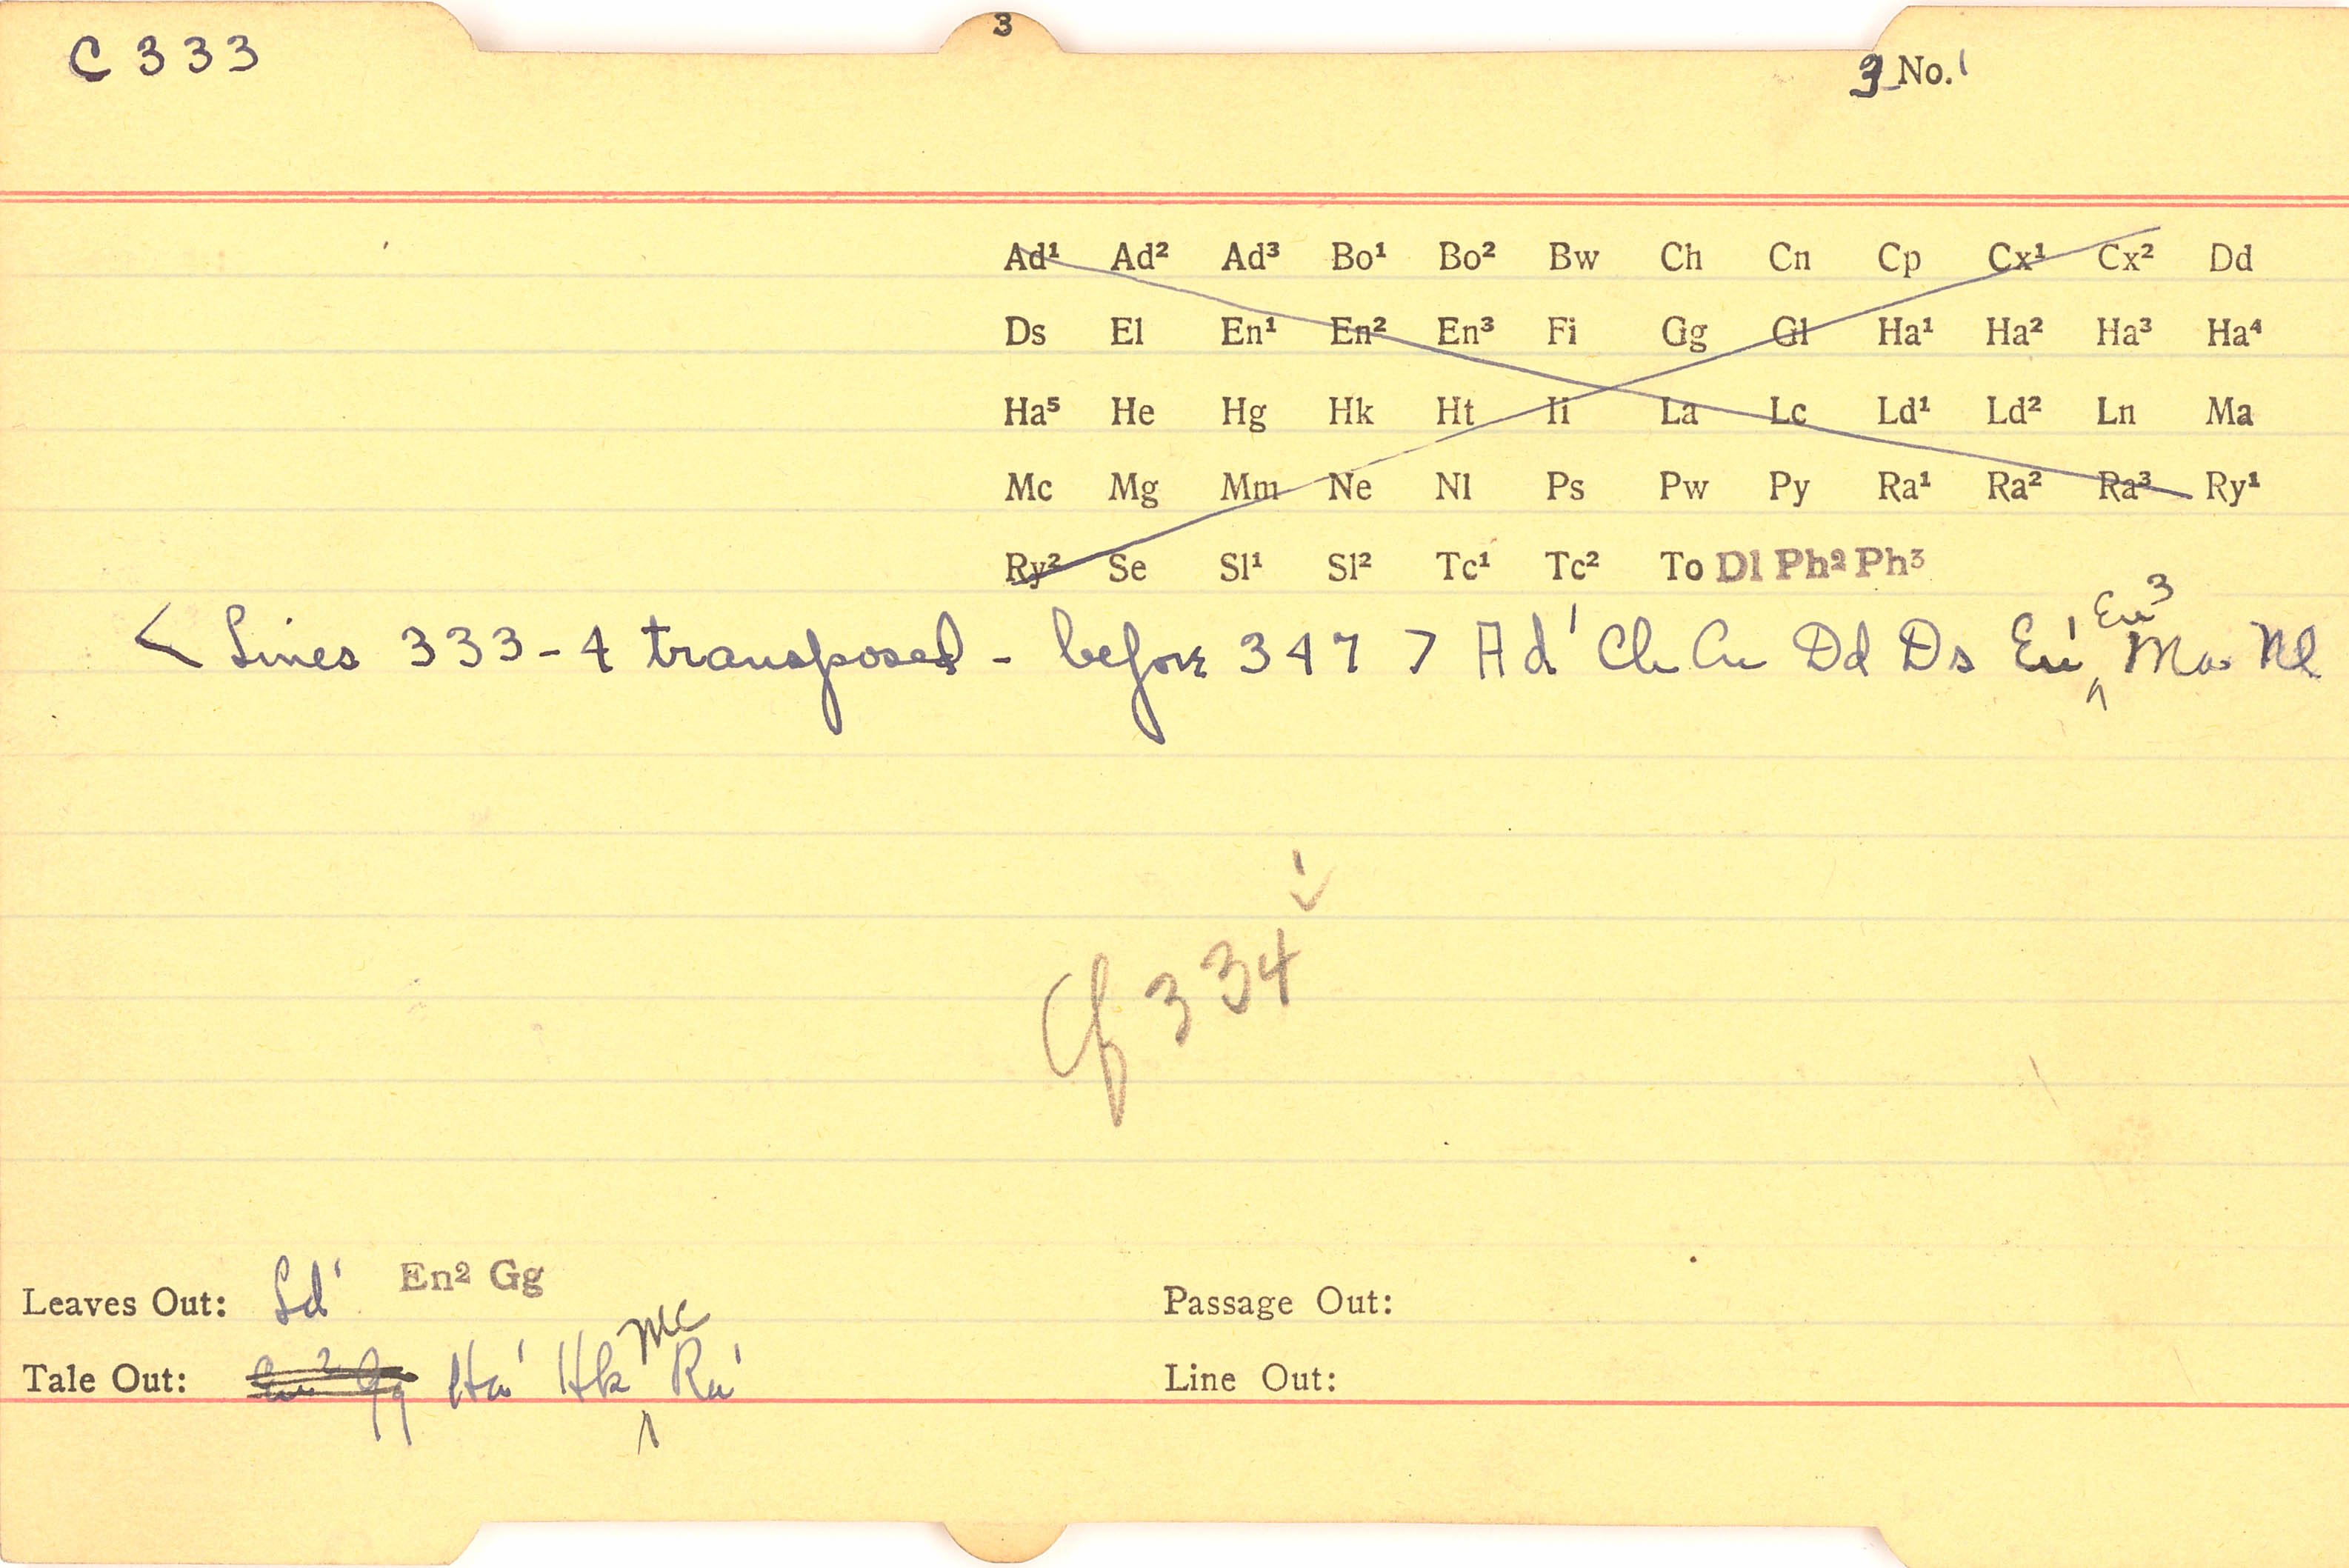 3
C 333
3 No. 1
Ad¹ Ad² Ad³ Bo¹ Bo² Bw Ch Cn Cp Cx¹ Cx² Dd
Ds El En¹ En² En³ Fi Gg Gl Ha¹ Ha² Ha³ Ha⁴
Ha⁵ He Hg Hk Ht Ii La Lc Ld¹ Ld² Ln Ma
Mc Mg Mm Ne Nl Ps Pw Py Ra¹ Ra² Ra³ Ry¹
Ry² Se Sl¹ Sl² Tc¹ Tc² To Dl Ph² Ph³
< Lines 333-4 transposed - before 347 > Ad¹ Ch Cn Dd Ds En¹ En³ Ma Nl
1
Cf 334
Leaves Out: Ld¹ En² Gg
Tale Out: En² Gg Ha¹ Hk Mc Ra¹
Passage Out:
Line Out: